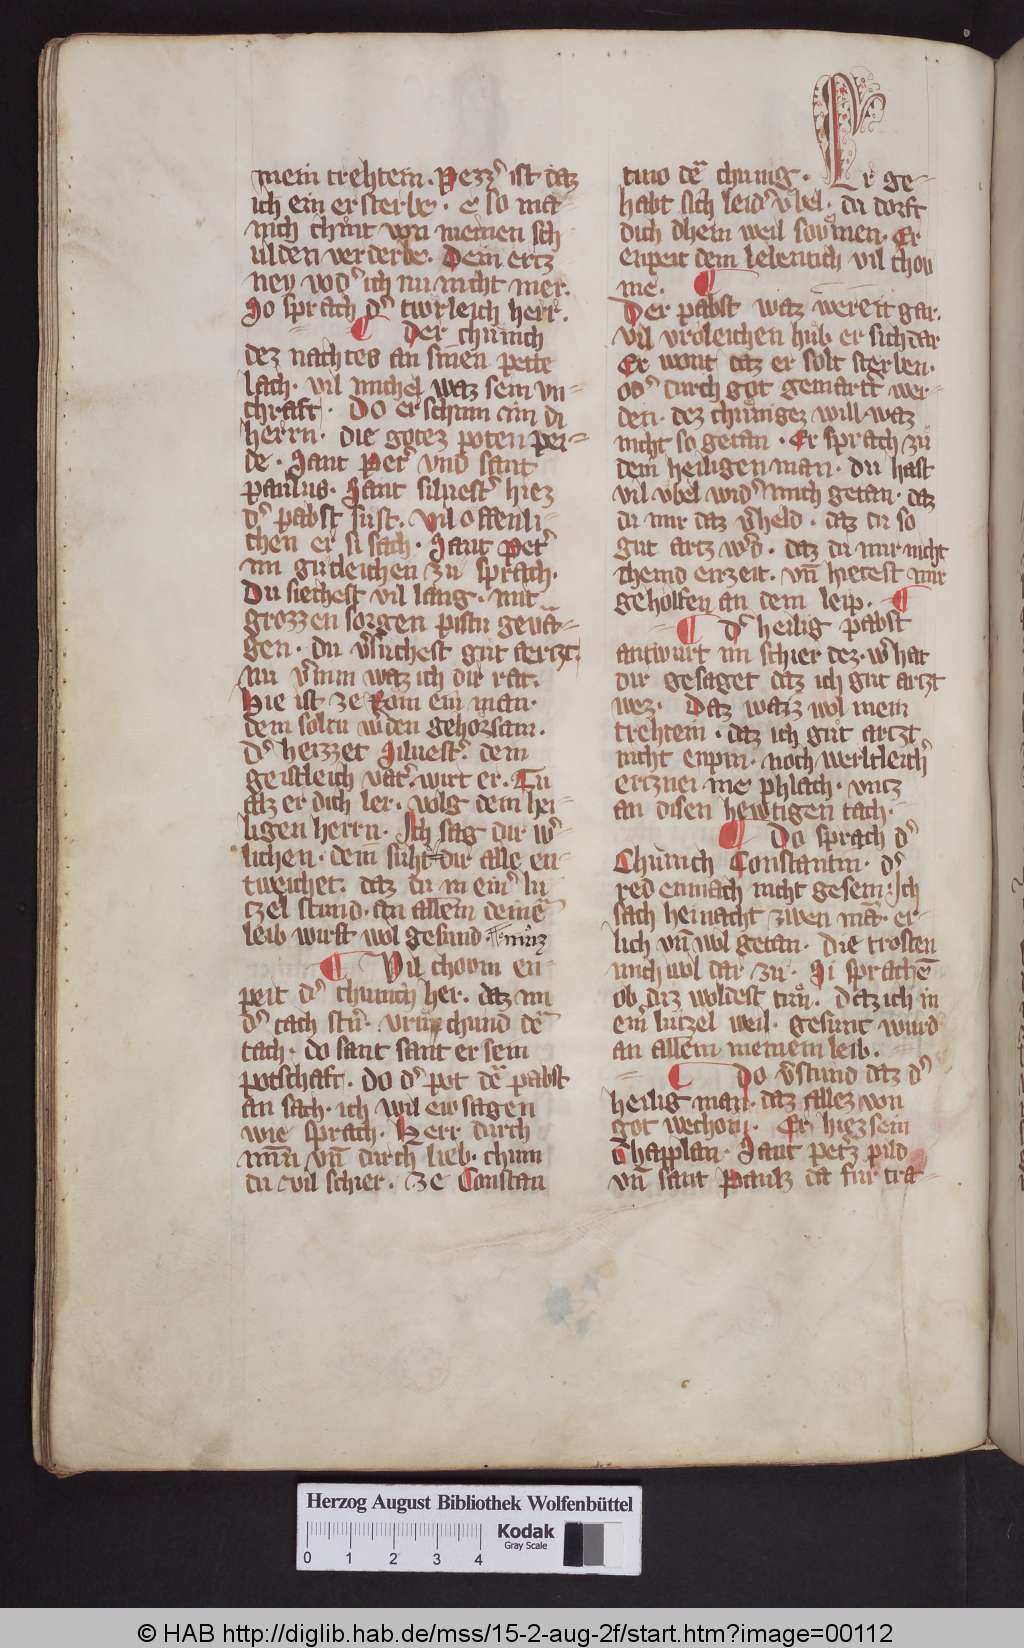 mein trehtein. Pezzˀ ist daz
ich ein ersterbe. e so ma-
nich chint von meinen sch
ulden verderbe. Dein ertz
ney vodˀ ich nu nicht mer.
So sprach dˀ tiwrleich herr.
Der chunich
dez nachtes an sinen pette
lach. vil michel waz sein vn-
chraft. Do erschein im di
herrn. die gotez poten pei-
de. Sant Petˀ vnd sant
paulus. Sant siluestˀ hiez
dˀ pabst sust. vil offenli-
chen er si sach. Sant Petˀ
im gutleichen zu sprach.
Du siechest vil lang. mit
grozzen sorgen pistu geuā-
gen. du vˀsuchest gut aertzt
nu vˀnim waz ich dir rat.
Hie ist ze Rom ein man.
dem soltu wˀden gehorsam.
dˀ heizzet Siluestˀ. dein
geistleich vatˀ wirt er. Tu
alz er dich ler. volg dem hei-
ligen herrn. Ich sag dir wˀ-
lichen. dein suht dir alle en-
tweichet. daz du in einˀ lu-
tzel stund. an allem deinē
leib wirst wol gesund.
Vil choum en-
peit dˀ chunich her. daz im
dˀ tach
tach. do sant sant er sein
potschaft. Do dˀ pot dē pabst
an sach. ich wil ew sagen
wie sprach. Herr durch
vn̄ durch lieb. chum
du vil schier. ze Constan
tino dē chunig. Er ge-
habt sich leidˀ vbel. du dorft
dich dhein weil soumen. Er
enpeit dem lebentich vil chou
me.
Der pabst waz wereit gar.
vil vroleichen hub er sich dar
Er wont daz er solt sterben.
odˀ durch got gemartˀt wer-
den. dez chuniges will waz
nicht so getan. Er sprach zu
dem heiligen man. du hast
vil vbel widˀ mich getan. daz
du mir daz vˀheld. daz du so
gut artz wˀd. daz du mir nicht
chemd enzeit. vn̄ hietest mir
geholfen an dem leip.
Dˀ heilig pabst
antwurt im schier dez. wˀ hat
dir gesaget daz ich gut artzt
wez. Daz waiz wol mein
trehtein. daz ich gut artzt
nicht enpin. noch werltleichˀ
ertznei nie phlach. vntz
an disen hewtigen tach.
Do sprach dˀ
Chunich Constantin. dˀ
red enmach nicht gesein. Ich
sach heinacht zwen mā. er-
lich vn̄ wol getan. die trosten
mich wol dar zu. Si sprachē
ob duz woldest tun. Daz ich in
einˀ lutzel weil. gesunt wurd
an allem meinem leib.
Do vˀstund daz dˀ
heilig man. daz allez von
got wechom. Er hiez sein
Chapplan. Sant petˀz pild
vn̄ sant Paulz da fur tra-
Herzog August Bibliothek Wolfenbüttel
Kodak
Gray Scale
0 1 2 3 4
© HAB http://diglib.hab.de/mss/15-2-aug-2f/start.htm?image=00112